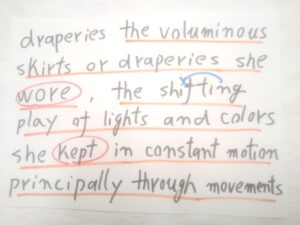 draperies the voluminous
skirts or draperies she
wore, the shifting
play of lights and colors
she kept in constant motion
principally through movements